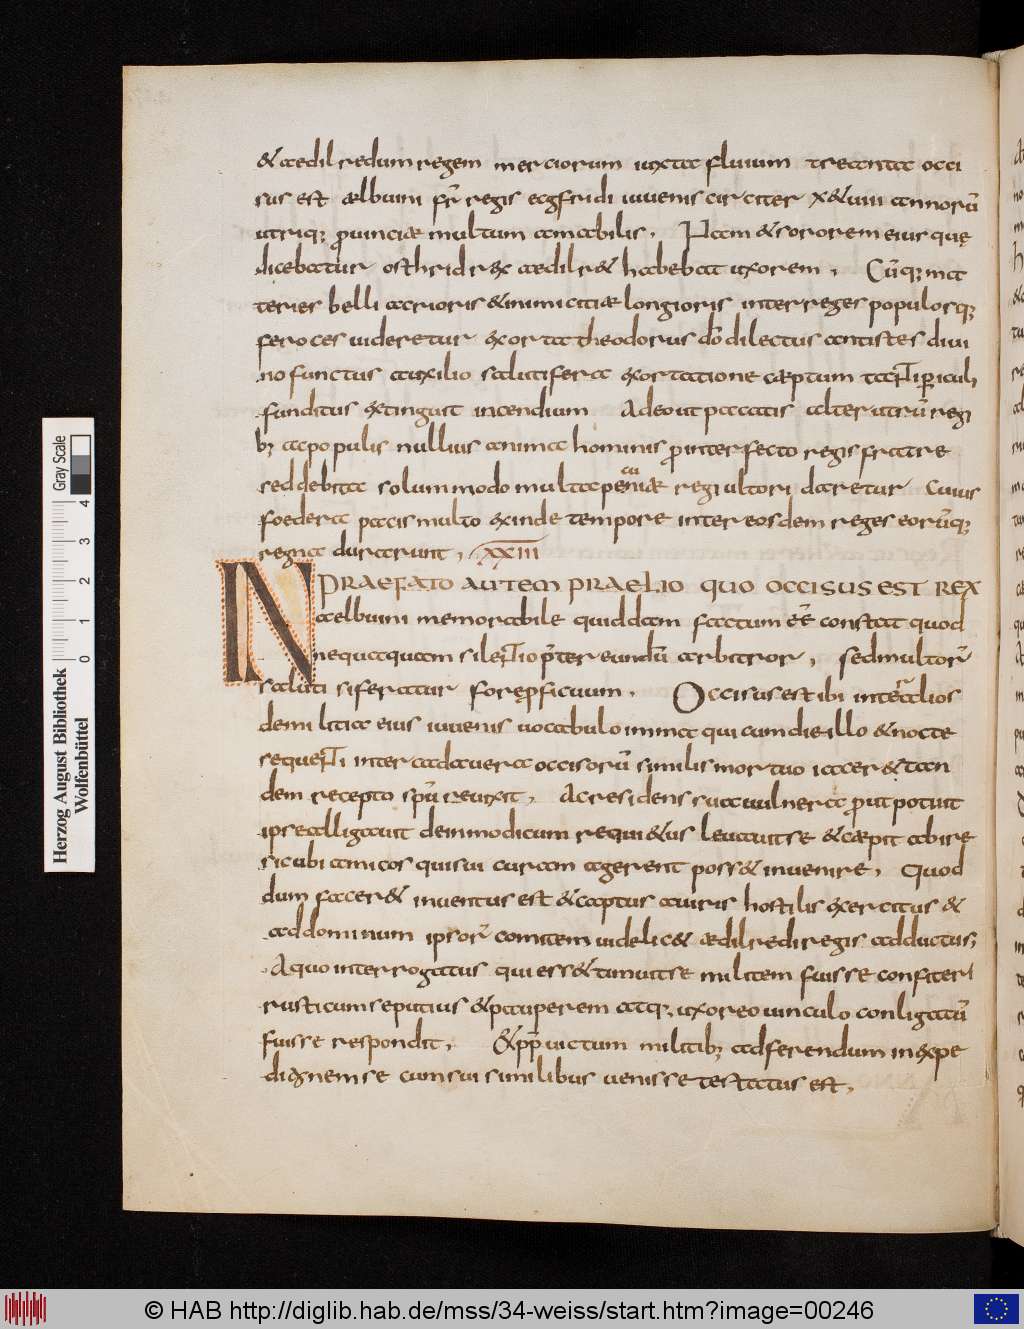 & aedilredum regem merciorum iuxta fluuium treanta occi
sus est ælbuini fr̄ regis ecgfridi iuuenis circiter X&uiii annorū
utriq; prouinciæ multum amabilis. Nam &sororem eius quę
dicebatur osthrid rex aedilr& habebat uxorem. Cūq; ma
teries belli acrioris &inimicitiæ longioris inter reges populosq;
feroces uideretur exorta theodorus dō dilectus antistes diui
no functus auxilio salutifera exortatione cæptum tanti periculi
funditus extinguit incendium Adeo ut pacatis alterutrū regi
b; ac populis nullius anima hominis pro interfecto regis fratre
sed debita solummodo multa pecuniæ regi ultori daretur Cuius
foedera pacis multo exinde tempore inter eosdem reges eorūq;
regna durarunt. XXIII
IN PRAEFATO AUTEM PRAELIO QUO OCCISUS EST REX
aelbuini memorabile quiddam factum eē constat quod
nequaquam silentio p̄ter eundū arbitror, sed multor̄
saluti si feratur fore proficuum. Occisus est ibi inter alios
de militia eius iuuenis uocabulo imma qui cum die illo &nocte
sequenti inter cadauera occisorū similis mortuo iacer& tan
dem recepto spū reuixit. Ac residens sua uulnera prout potuit
ipse alligauit dein modicum requi&us leuauit se &cæpit abire
sicubi amicos qui sui curam agerent poss& inuenire. Quod
dum facer& inuentus est &captus a uiris hostilis exercitus &
ad dominum ipsor̄ comitem uidelic& ædilredi regis adductus;
A quo interrogatus qui ess& timuit se militem fuisse confiteri
rusticum se potius &pauperem atq; uxoreo uinculo conligatū
fuisse respondit. &pp̄ uictum militib; adferendum in expe
ditionem se cum sui similibus uenisse testatus est.
Herzog August Bibliothek
Wolfenbüttel
0 1 2 3 4
Gray Scale
© HAB http://diglib.hab.de/mss/34-weiss/start.htm?image=00246